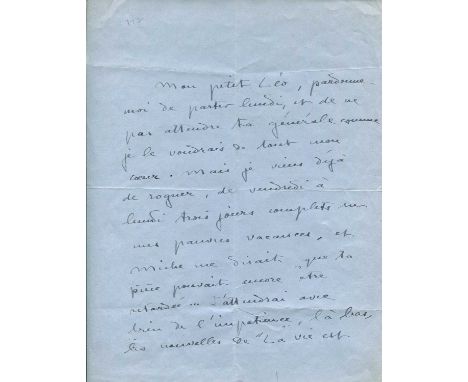 Mon petit Léo, pardonne-
moi de partir lundi, et de ne
pas attendre ta générale comme
je le voudrais de tout mon
cœur. Mais je viens déjà
de rogner, de vendredi à
lundi trois jours complets sur
mes pauvres vacances, et
Miche me disait que ta
pièce pouvait encore être
retardée... J'attendrai avec
bien de l'impatience, là-bas,
les nouvelles de "La vie est